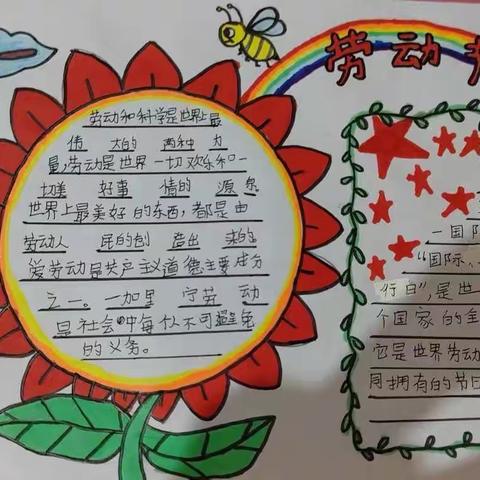 劳动
劳动和科学是世界上最
伟 大的 两种 力
量,劳动是世界一切欢乐和一
切美 好事 情的 源泉
世界上最美好的东西,都是由
劳动人 民的创 造出 来的。
爱劳动是共产主义道德主要成分
之一。一加里 宁劳 动
是社会中每个人不可避免
的义务。
一国际
“国际
行日”,是世
个国家的
它是世界劳动
同拥有的节日